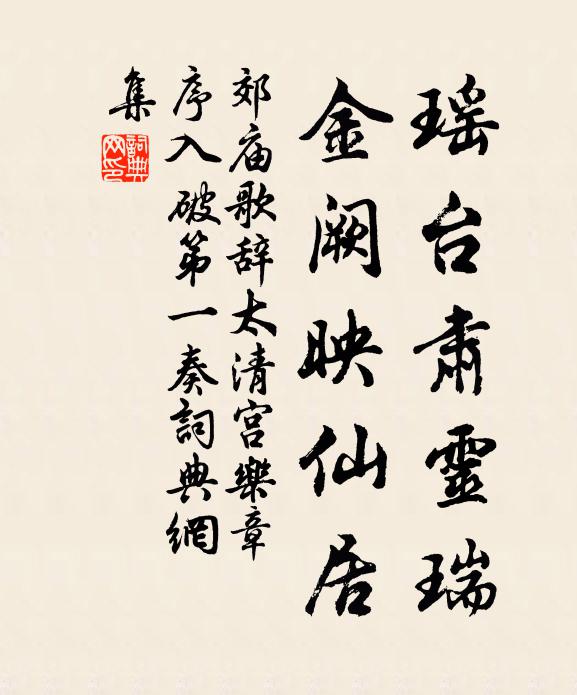 瑶台肃靈瑞
金阙映仙居
郊庙歌辞太清宫樂章
序入破第一奏詞典網
集
詞典
网印